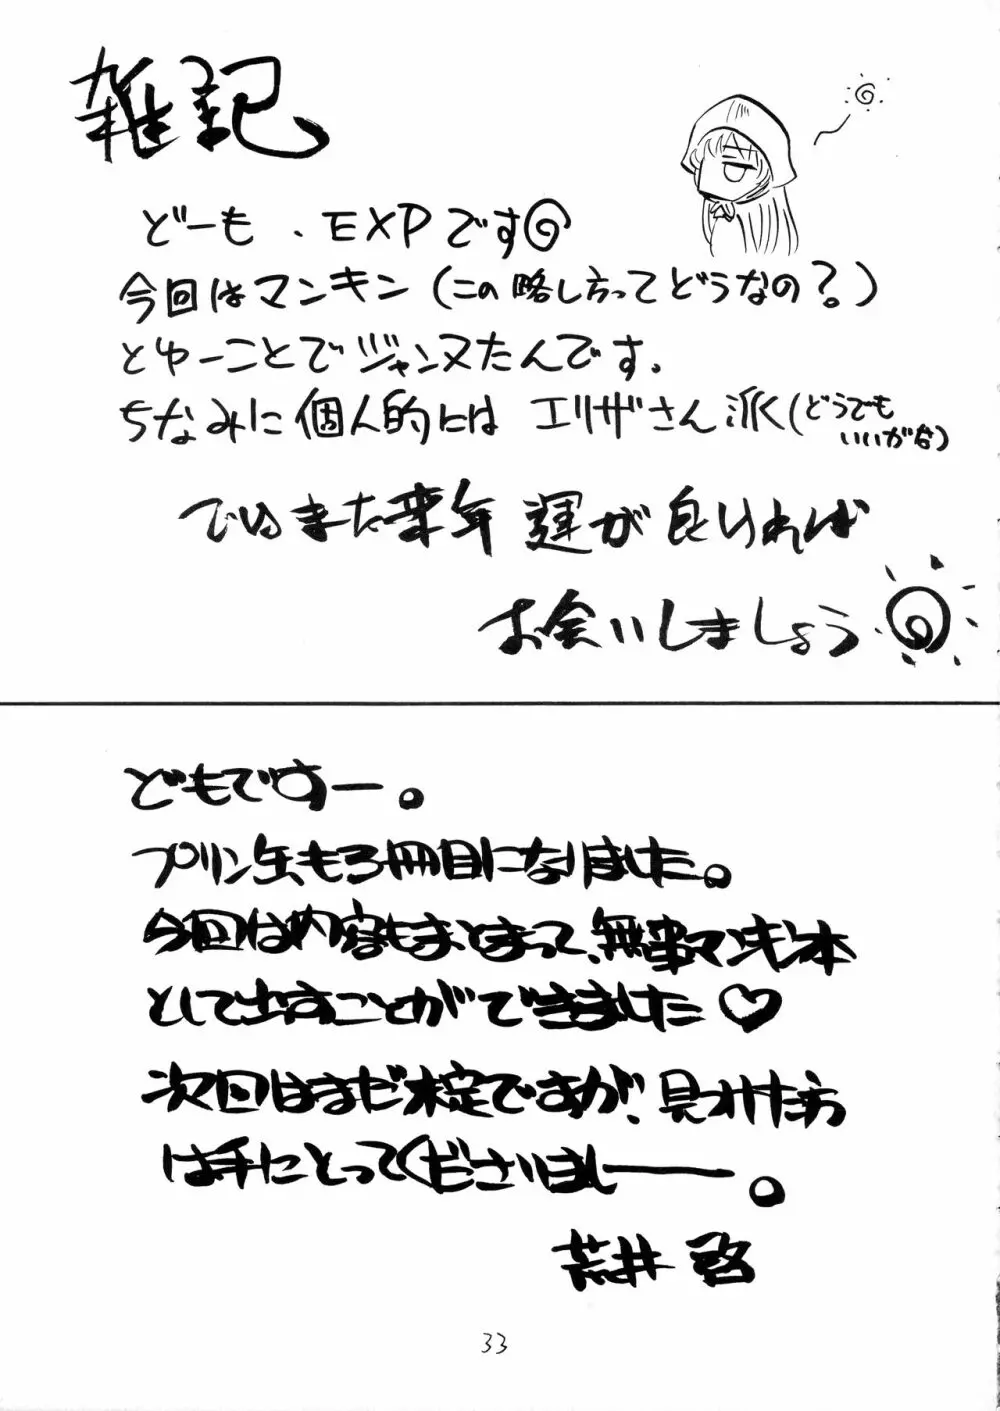 雑記
どーも、EXPです
今回はマンキン(この略し方ってどうなの?)
とゆーことでジャンヌたんです。
ちなみに個人的には エリザさん派(どうでも
いいがな)
ではまた来年 運が良ければ
お会いしましょう
どもですー。
プリン缶も3冊目になりました。
今回は内容もまとまって、無事マンキン本
として出すことができました♡
次回はまだ未定ですが、見つけた方
は手にとってくださいましー。
荒井 啓
33